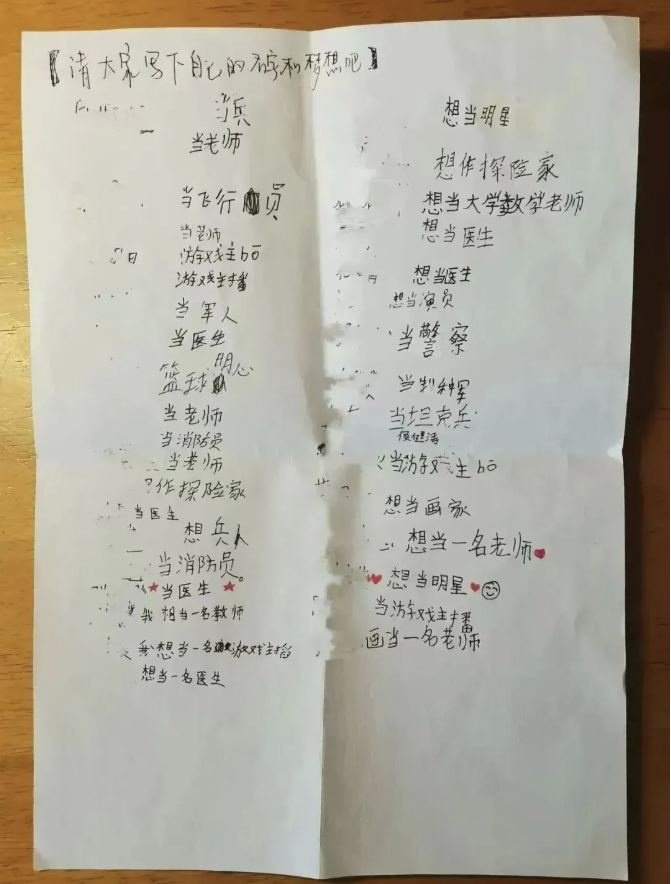 【请大家写下自己的名字和梦想吧】
当兵
当老师
当飞行员
当老师
日
游戏主bo
游戏主播
当军人
当医生
篮球明心
当老师
当消防员
当老师
作探险家
当医生
想兵人
当消防员。
当医生
我想当一名教师
我想当一名游戏主播
想当一名医生
想当明星
想作探险家
想当大学数学老师
想当医生
想当医生
想当演员
当警察
当特种军
当坦克兵
当游戏主bo
想当画家
想当一名老师
想当明星
当游戏主播
当一名老师